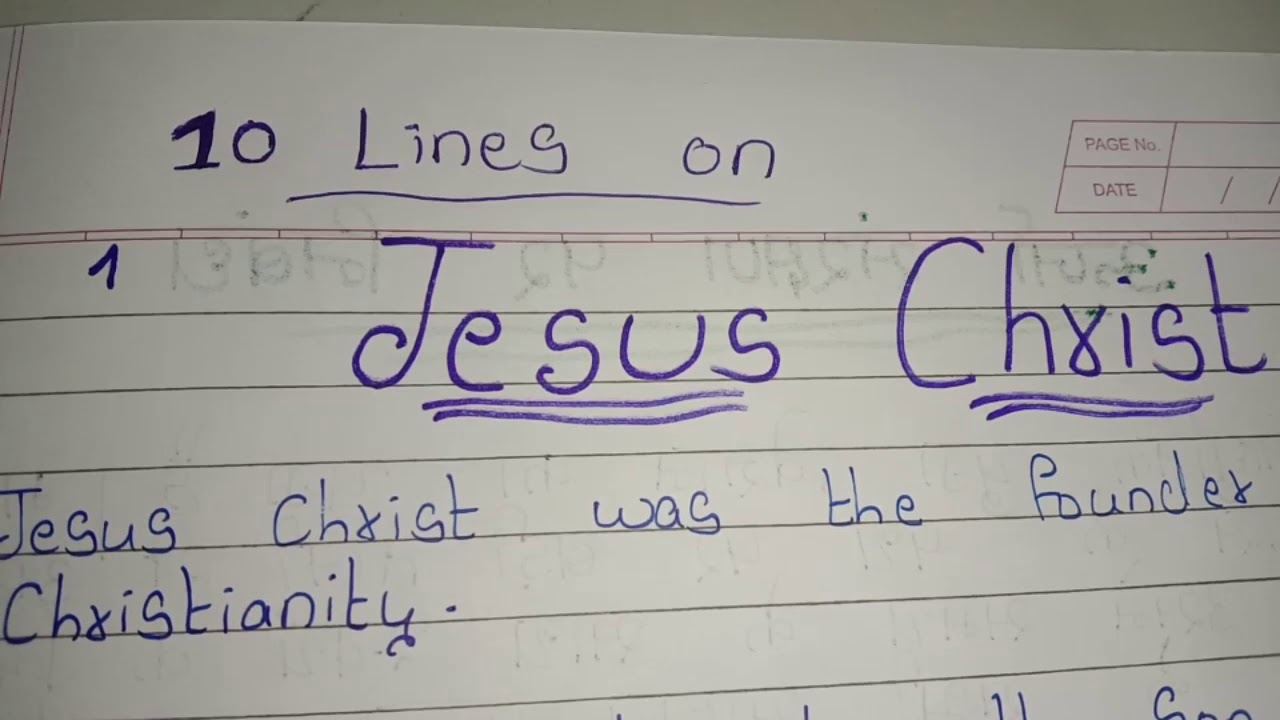 10 Lines on
PAGE No.
DATE / /
1
Jesus Christ
Jesus Christ was the founder
Christianity.